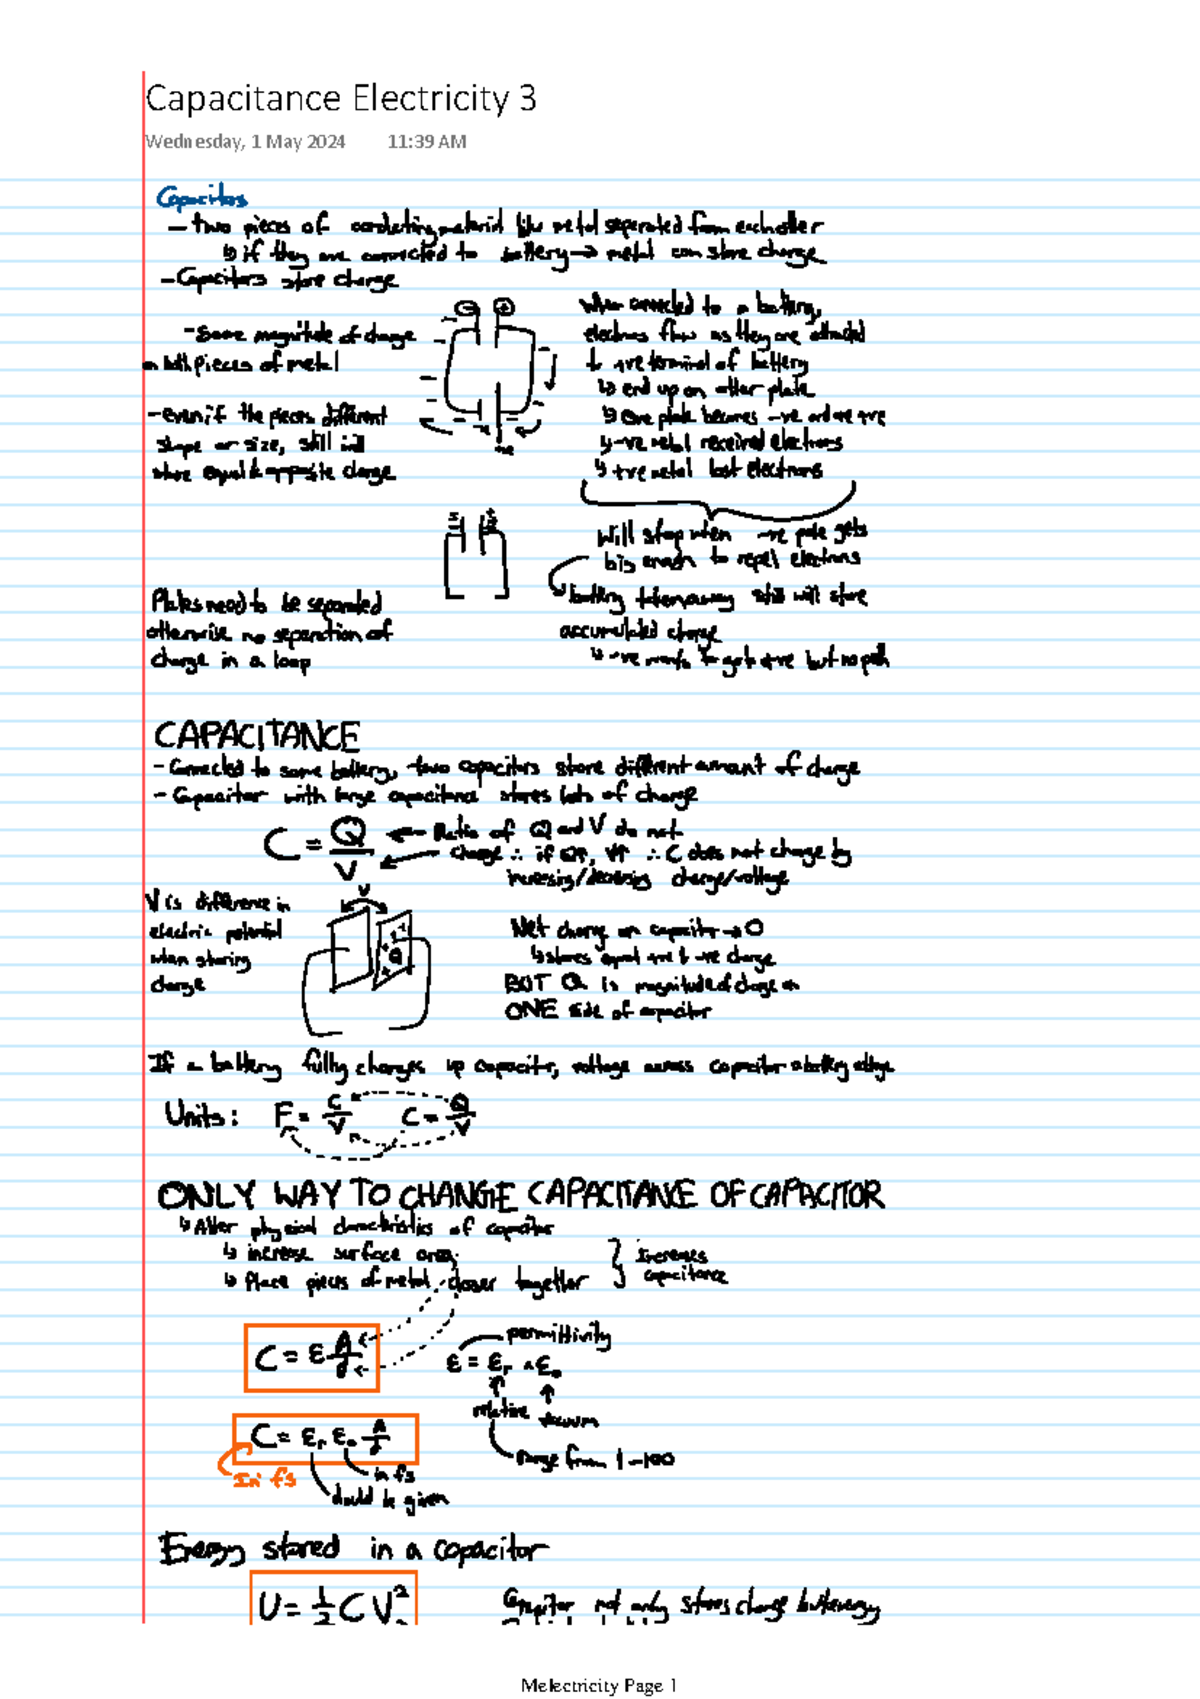 Capacitance Electricity 3
Wednesday, 1 May 2024 11:39 AM
Capacitors
- two pieces of conducting material like metal separated from each other
↳ if they are connected to battery → metal can store charge
- Capacitors store charge
- Same magnitude of charge
on both pieces of metal
- even if the pieces different
shape or size, still will
store equal & opposite charge
- +
When connected to a battery,
electrons flow as they are attracted
to +ve terminal of battery
↳ end up on other plate
↳ One plate becomes -ve and one +ve
↳ -ve metal received electrons
↳ +ve metal lost electrons
Will stop when -ve pole gets
big enough to repel electrons
battery taken away still will store
accumulated charge
↳ -ve wants to go to +ve but no path
Plates need to be separated
otherwise no separation of
charge in a loop
CAPACITANCE
- Connected to same battery, two capacitors store different amount of charge
- Capacitor with large capacitance stores lots of charge
C = Q/V
← Ratio of Q and V do not
change ∴ if Q↑, V↑ ∴ C does not change by
increasing/decreasing charge/voltage
V is difference in
electric potential
when storing
charge
V
Q
Net charge on capacitor → 0
↳ stores equal +ve & -ve charge
BUT Q is magnitude of charge on
ONE side of capacitor
If a battery fully charges up capacitor, voltage across capacitor = battery voltage
Units: F = C/V C = Q/V
ONLY WAY TO CHANGE CAPACITANCE OF CAPACITOR
↳ Alter physical characteristics of capacitor
↳ increase surface area
↳ Place pieces of metal closer together
} Increases
capacitance
C = ε A/d
permittivity
ε = εr × ε0
relative vacuum
range from 1-100
C = εr ε0 A/d
In fs
in fs
should be given
Energy stored in a capacitor
U = 1/2 C V²
Capacitor not only stores charge but energy
Melectricity Page 1